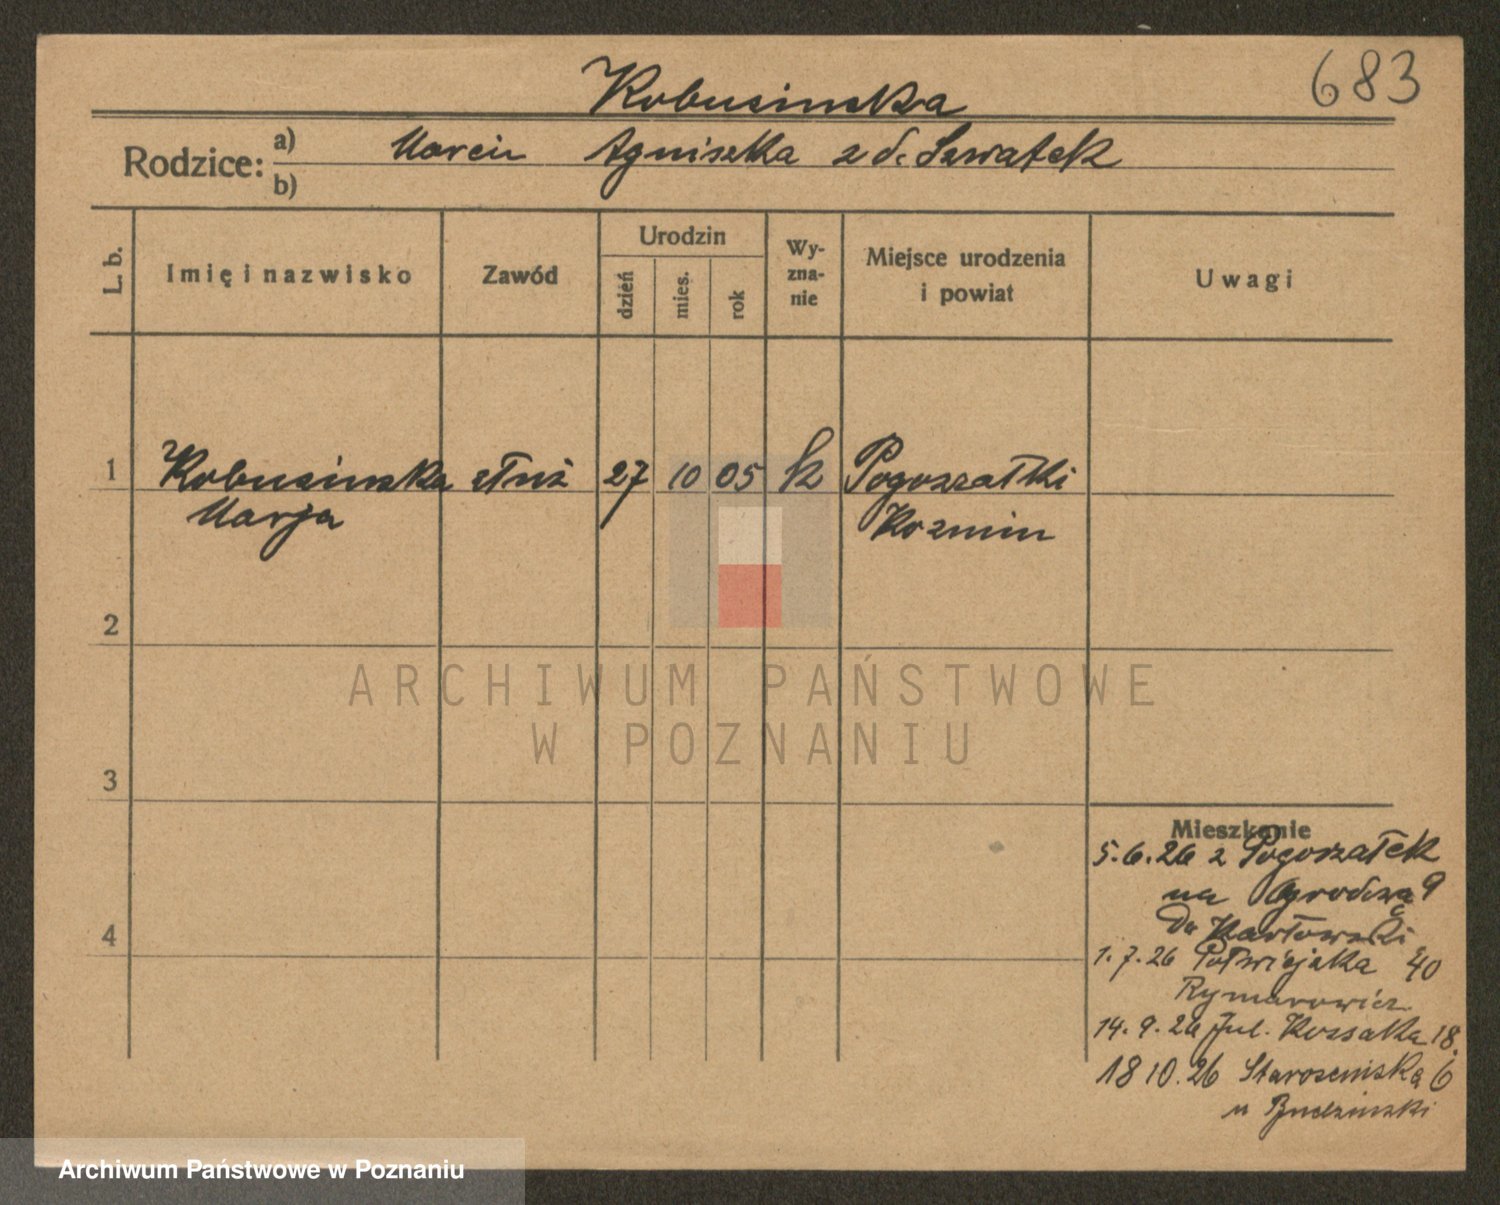 683
Kobusinska
Rodzice: a) Marcin Agniszka z d. Szwatek
b)
L. b.
Imię i nazwisko
Zawód
Urodzin
dzień
mies.
rok
Wy-
zna-
nie
Miejsce urodzenia
i powiat
Uwagi
1 Kobusinska służ 27 10 05 k Pogorzałki
Marja Kozmin
2
ARCHIWUM PAŃSTWOWE
W POZNANIU
3
Mieszkanie
5.6.26 z Pogorzałek
na Ogrodową 9
Karłowski
4
1.7.26 Półwiejska 40
Rymarowicz
14.9.26 Jul. Kossaka 18.
18 10.26 6
u Budzinski
Archiwum Państwowe w Poznaniu